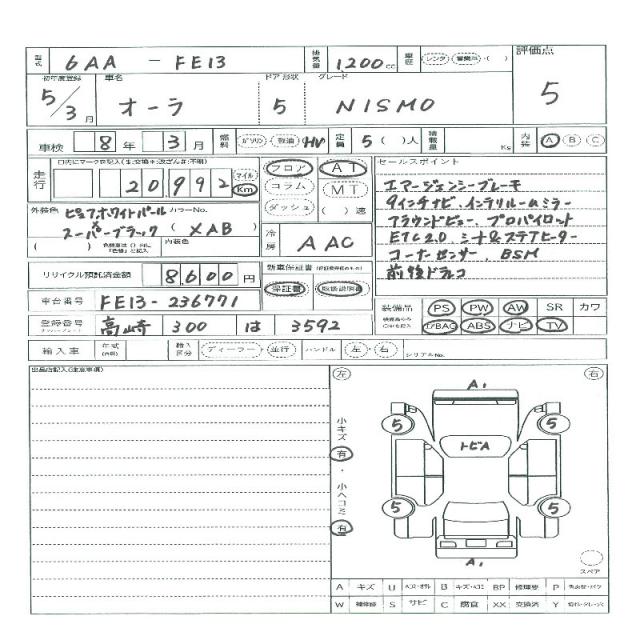 型式 6AA - FE13 排気量 1200cc 車歴 レンタ・営業用・( ) 評価点 5
初年度登録 5/3月 車名 オーラ ドア形状 5 グレード NISMO
車検 8年 3月 燃料 ガソリン・軽油・(HV) 定員 5( )人 積載量 Ks 内装 A B C
走行 20,992 マイル Km
フロア AT
コラム MT
ダッシュ ( )速
外装色 ピュアホワイトパール カラーNo.
スーパーブラック (XAB)
( ) 内装色
冷房 AAC
セールスポイント
エマージェンシーブレーキ
9インチナビ、インテリルームミラー
アラウンドビュー、プロパイロット
ETC2.0、シート&ステアヒーター
コーナーセンサー、BSM
前後ドラレコ
リサイクル預託済金額 8,600円
新車保証書
保証書・取扱説明書
車台番号 FE13-236771
装備品 PS PW AW SR カワ
エアBAG ABS ナビ TV
登録番号 高崎 300 は 3592
輸入車 年式 輸入区分 ディーラー・並行 ハンドル 左・右 シリアルNo.
出品店記入(注意事項)
左 右
小キズ 有・小ヘコミ 有
A1
5 5
トビA
5 5
A1
スペア
A キズ U B キズ・ヘコミ BP 修理要 P
W 補修跡 S サビ C 腐食 XX 交換済 Y